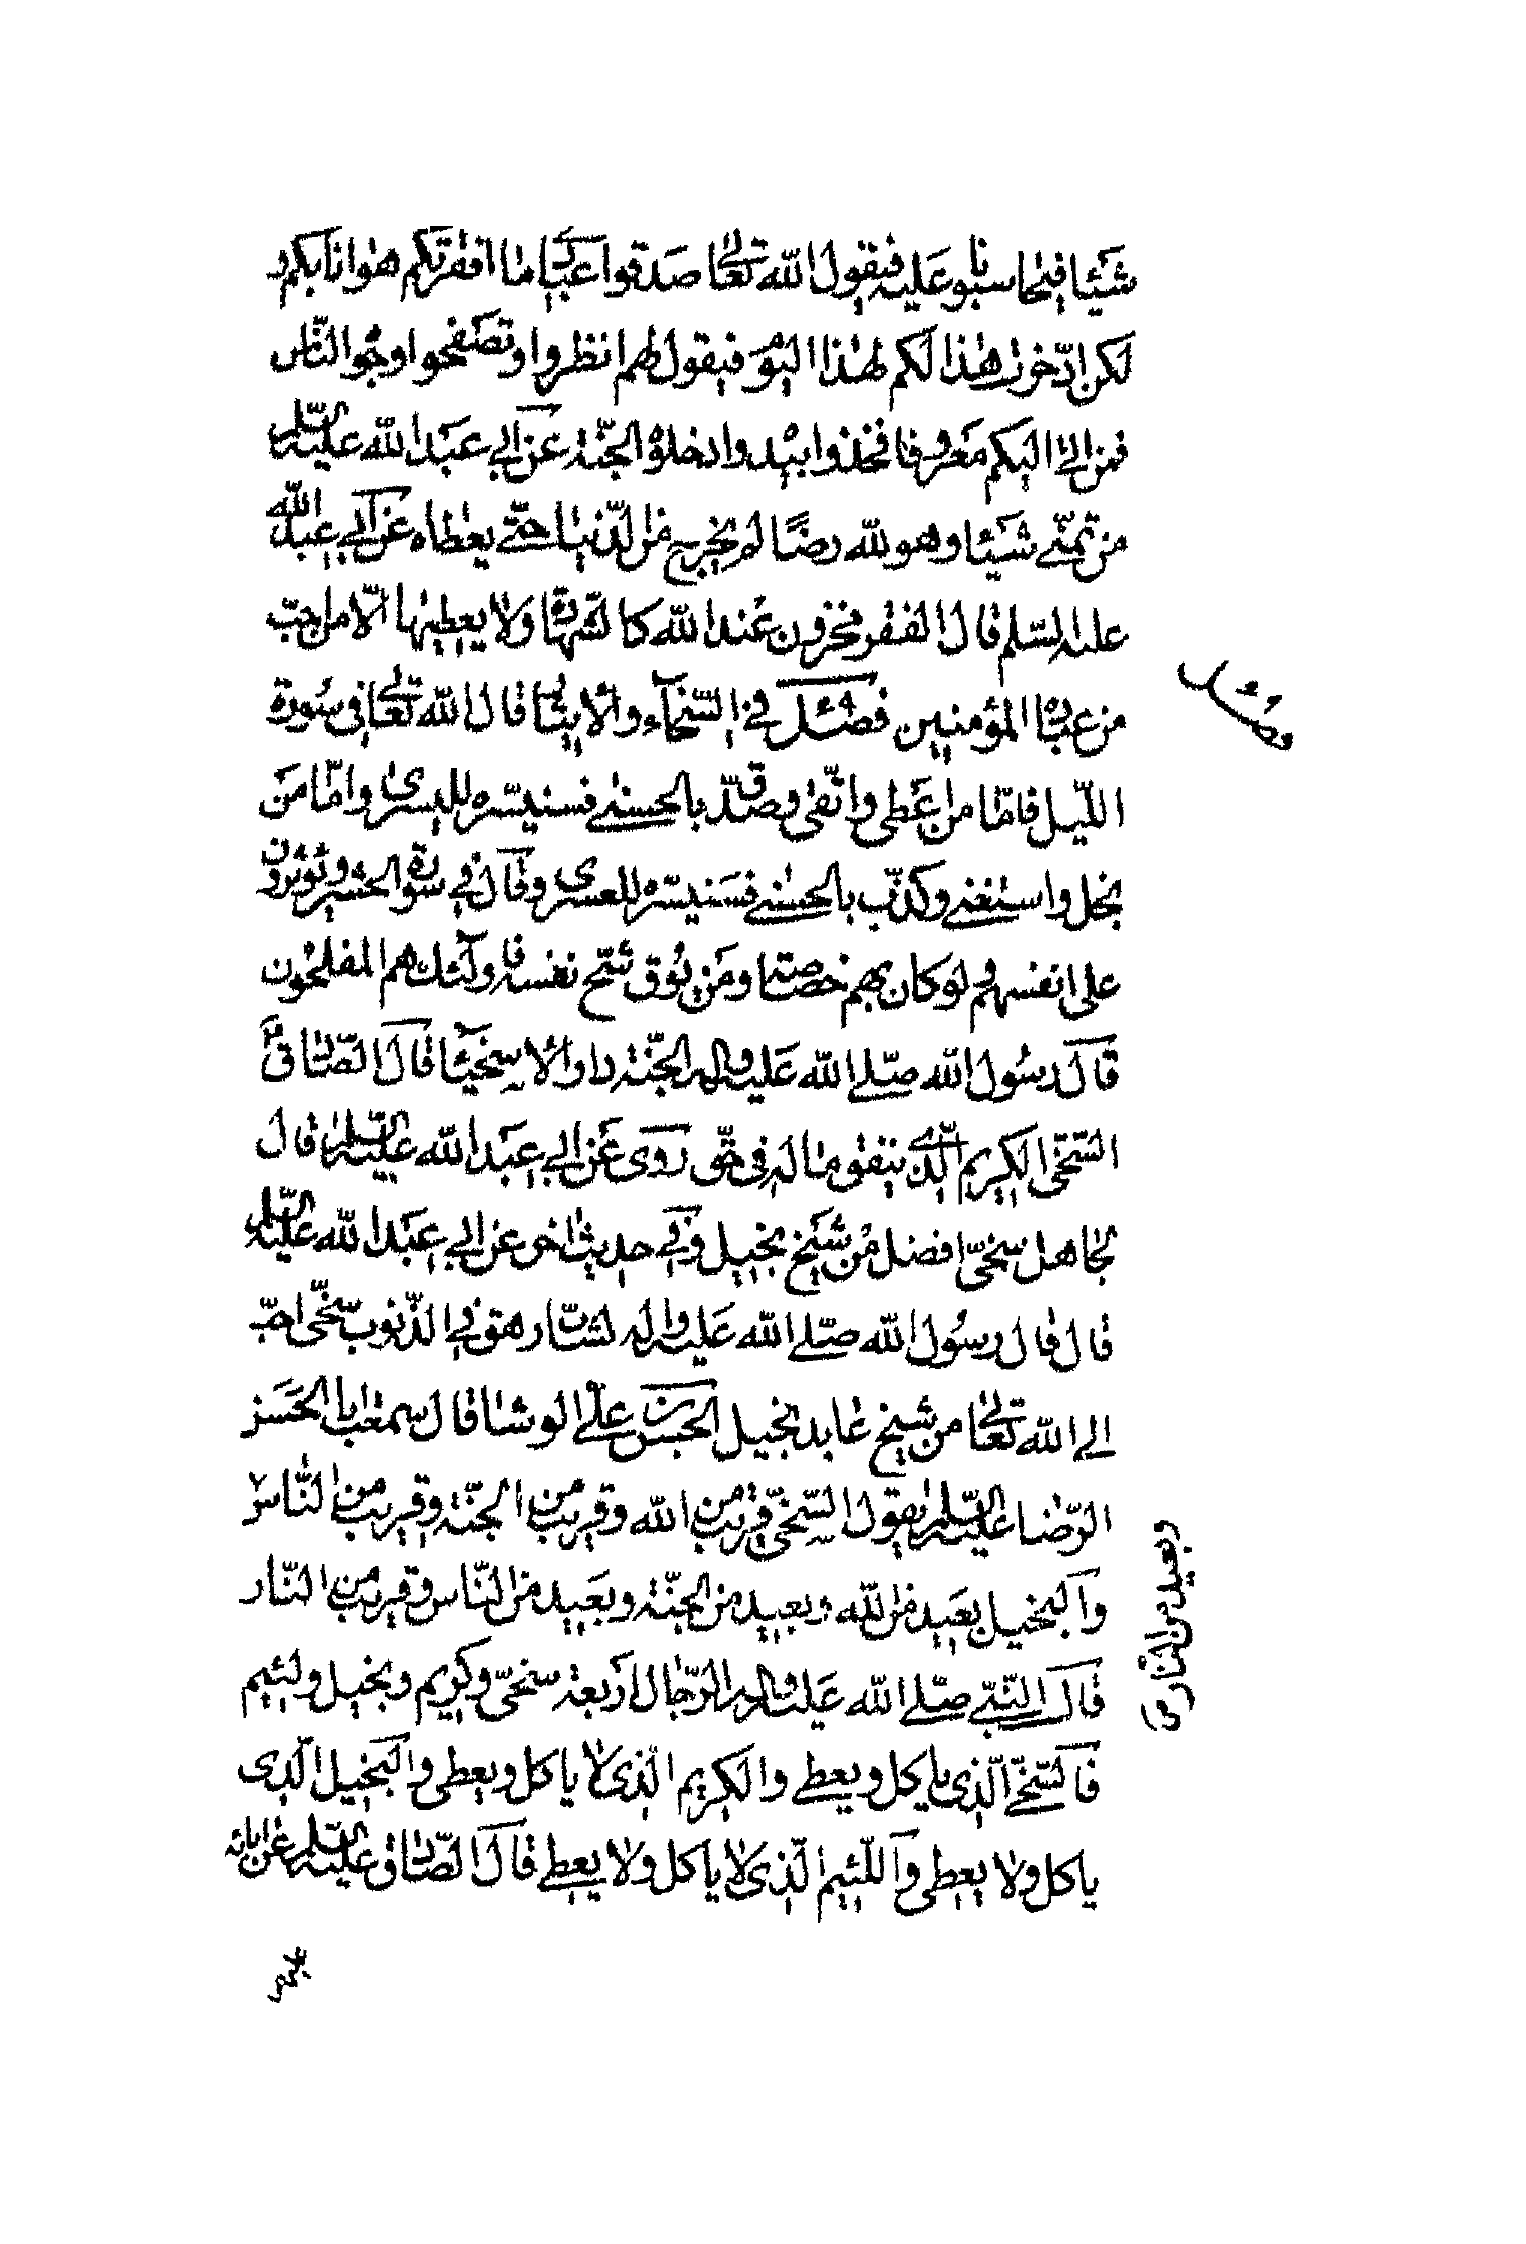 شيئا فيحاسبونا عليه فيقول الله تعالى صدقوا عبادى ما افقرتكم هوانا بكم و
لكن ادّخرت هذا لكم لهذا اليوم فيقول لهم انظروا وتصفحوا وجوه النّاس
فمن اتى اليكم معروفا فخذوا بيده وادخلوه الجنّة عن ابي عبد الله عليه السّلم
من تمنّى شيئا وهو لله رضًا لم يخرج من الدّنيا حتّى يعطاه عن ابي عبد الله
عليه السّلم قال الفقر مخزون عند الله كالشّهادة ولا يعطيها الّا من احبّ
من عباده المؤمنين فصل في السّخآء والايثار قال الله تعالى في سورة
اللّيل فامّا من اعطى واتّقى وصدّق بالحسنى فسنيسّره لليسرى وامّا من
بخل واستغنى وكذّب بالحسنى فسنيسّره للعسرى وقال في سورة الحشر ويؤثرون
على انفسهم ولو كان بهم خصاصة ومن يوق شحّ نفسه فاولئك هم المفلحون
قال رسول الله صلّى الله عليه واله الجنّة دار الاسخيآء قال الصّادق ع
السّخى الكريم الّذى ينفق ماله فى حقّ روى عن ابي عبد الله عليه السّلم قال
لجاهل سخىّ افضل من شيخ بخيل وفي حديث اخر عن ابي عبد الله عليه السّلم
قال قال رسول الله صلّى الله عليه واله لشابّ رهق في الذّنوب سخّى احبّ
الى الله تعالى من شيخ عابد بخيل الحسن بن علىّ الوشا قال سمعت ابا الحسن
الرّضا عليه السّلم يقول السّخىّ قريب من الله وقريب من الجنّة وقريب من النّاس
والبخيل بعيد من الله وبعيد من الجنّة وبعيد من النّاس وقريب من النّار
قال النّبىّ صلّى الله عليه واله الرّجال اربعة سخىّ وكريم وبخيل ولئيم
فالسّخىّ الّذى ياكل ويعطى والكريم الّذى لا ياكل ويعطى والبخيل الّذى
ياكل ولا يعطى واللّئيم الّذى لا ياكل ولا يعطى قال الصّادق عليه السّلم عن ابائه
فصل
وبعيد من النّار